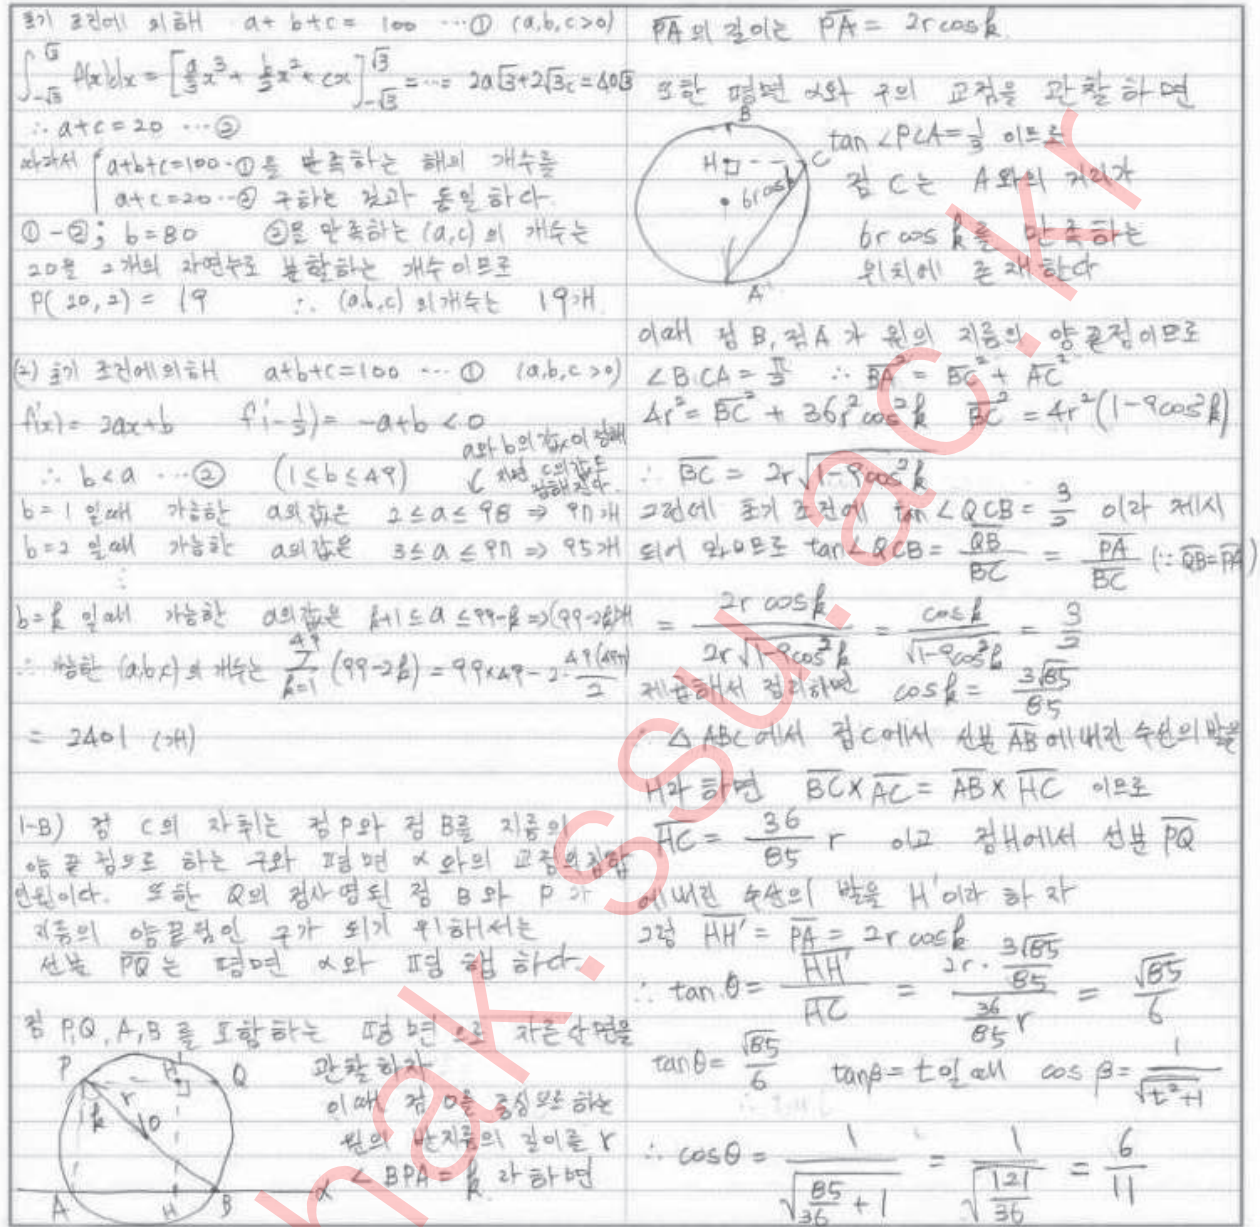 초기 조건에 의해 a+b+c = 100 … ① (a,b,c>0)
∫_{-√3}^{√3} f(x)dx = [a/3 x³ + b/2 x² + cx]_{-√3}^{√3} = … = 2a√3+2√3c = 40√3
∴ a+c=20 … ②
따라서 { a+b+c=100 … ① 을 만족하는 해의 개수를
a+c=20 … ② 구하는 것과 동일하다.
① - ② ; b=80 ②를 만족하는 (a,c)의 개수는
20을 2개의 자연수로 분할하는 개수이므로
P(20,2) = 19 ∴ (a,b,c)의 개수는 19개.
(2) 초기 조건에 의해 a+b+c=100 … ① (a,b,c>0)
f'(x) = 2ax+b f'(-1/2) = -a+b < 0
a와 b의 값이 정해
∴ b<a … ② (1≤b≤49) 지면 c의 값도
정해진다.
b=1 일때 가능한 a의 값은 2≤a≤98 ⇒ 97개
b=2 일때 가능한 a의 값은 3≤a≤97 ⇒ 95개
⋮
b=k 일때 가능한 a의 값은 k+1≤a≤99-k ⇒ (99-2k)개
∴ 가능한 (a,b,c)의 개수는 Σ_{k=1}^{49} (99-2k) = 99×49 - 2·49(49+1)/2
= 2401 (개)
1-B) 점 C의 자취는 점 P와 점 B를 지름의
양 끝 점으로 하는 구와 평면 α와의 교점의 집합
인 원이다. 또한 Q의 정사영된 점 B와 P가
지름의 양끝점인 구가 되기 위해서는
선분 PQ는 평면 α와 평행하다.
점 P,Q,A,B를 포함하는 평면으로 자른 단면을
관찰하자
이때, 점 O를 중심으로 하는
원의 반지름의 길이를 r
∠BPA = k 라 하면
P H' Q
r
k O
A H B α
PA의 길이는 PA = 2r cos k.
또한 평면 α와 구의 교점을 관찰하면
B
H C
6r cos k
A
tan∠PCA = 1/3 이므로
점 C는 A와의 거리가
6r cos k를 만족하는
위치에 존재한다
이때 점 B, 점 A가 원의 지름의 양 끝점이므로
∠BCA = π/2 ∴ BA² = BC² + AC²
4r² = BC² + 36r²cos²k BC² = 4r²(1-9cos²k)
∴ BC = 2r√(1-9cos²k)
그런데 초기 조건에 tan∠QCB = 3/2 이라 제시
되어 있으므로 tan∠QCB = QB/BC = PA/BC (∵ QB=PA)
= 2r cos k / 2r√(1-9cos²k) = cos k / √(1-9cos²k) = 3/2
제곱해서 정리하면 cos k = 3√85/85
∴ △ABC에서 점 C에서 선분 AB에 내린 수선의 발을
H라 하면 BC×AC = AB×HC 이므로
HC = 36/85 r 이고 점 H에서 선분 PQ
에 내린 수선의 발을 H'이라 하자
그럼 HH' = PA = 2r cos k
∴ tanθ = HH'/HC = (2r·3√85/85)/(36/85 r) = √85/6
tanθ = √85/6 tanβ = t일 때 cosβ = 1/√(t²+1)
∴ cosθ = 1/√(85/36 + 1) = 1/√(121/36) = 6/11
hak.ssu.ac.kr